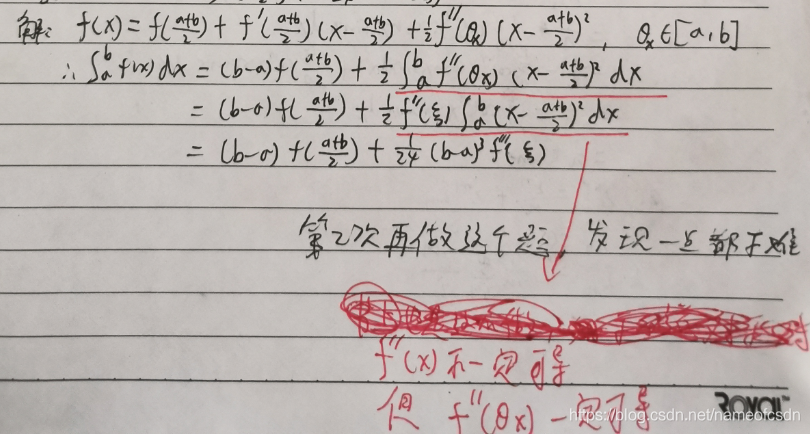 解: f(x) = f(a+b/2) + f'(a+b/2)(x-a+b/2) + 1/2 f''(θx)(x-a+b/2)², θx∈[a,b]
∴ ∫_a^b f(x)dx = (b-a)f(a+b/2) + 1/2 ∫_a^b f''(θx) (x-a+b/2)² dx
= (b-a)f(a+b/2) + 1/2 f''(ξ) ∫_a^b (x-a+b/2)² dx
= (b-a)f(a+b/2) + 1/24 (b-a)³ f''(ξ)
第2次再做这个题, 发现一点都不难
f''(x)不一定可导
但 f''(θx)一定可导
https://blog.csdn.net/nameofcsdn